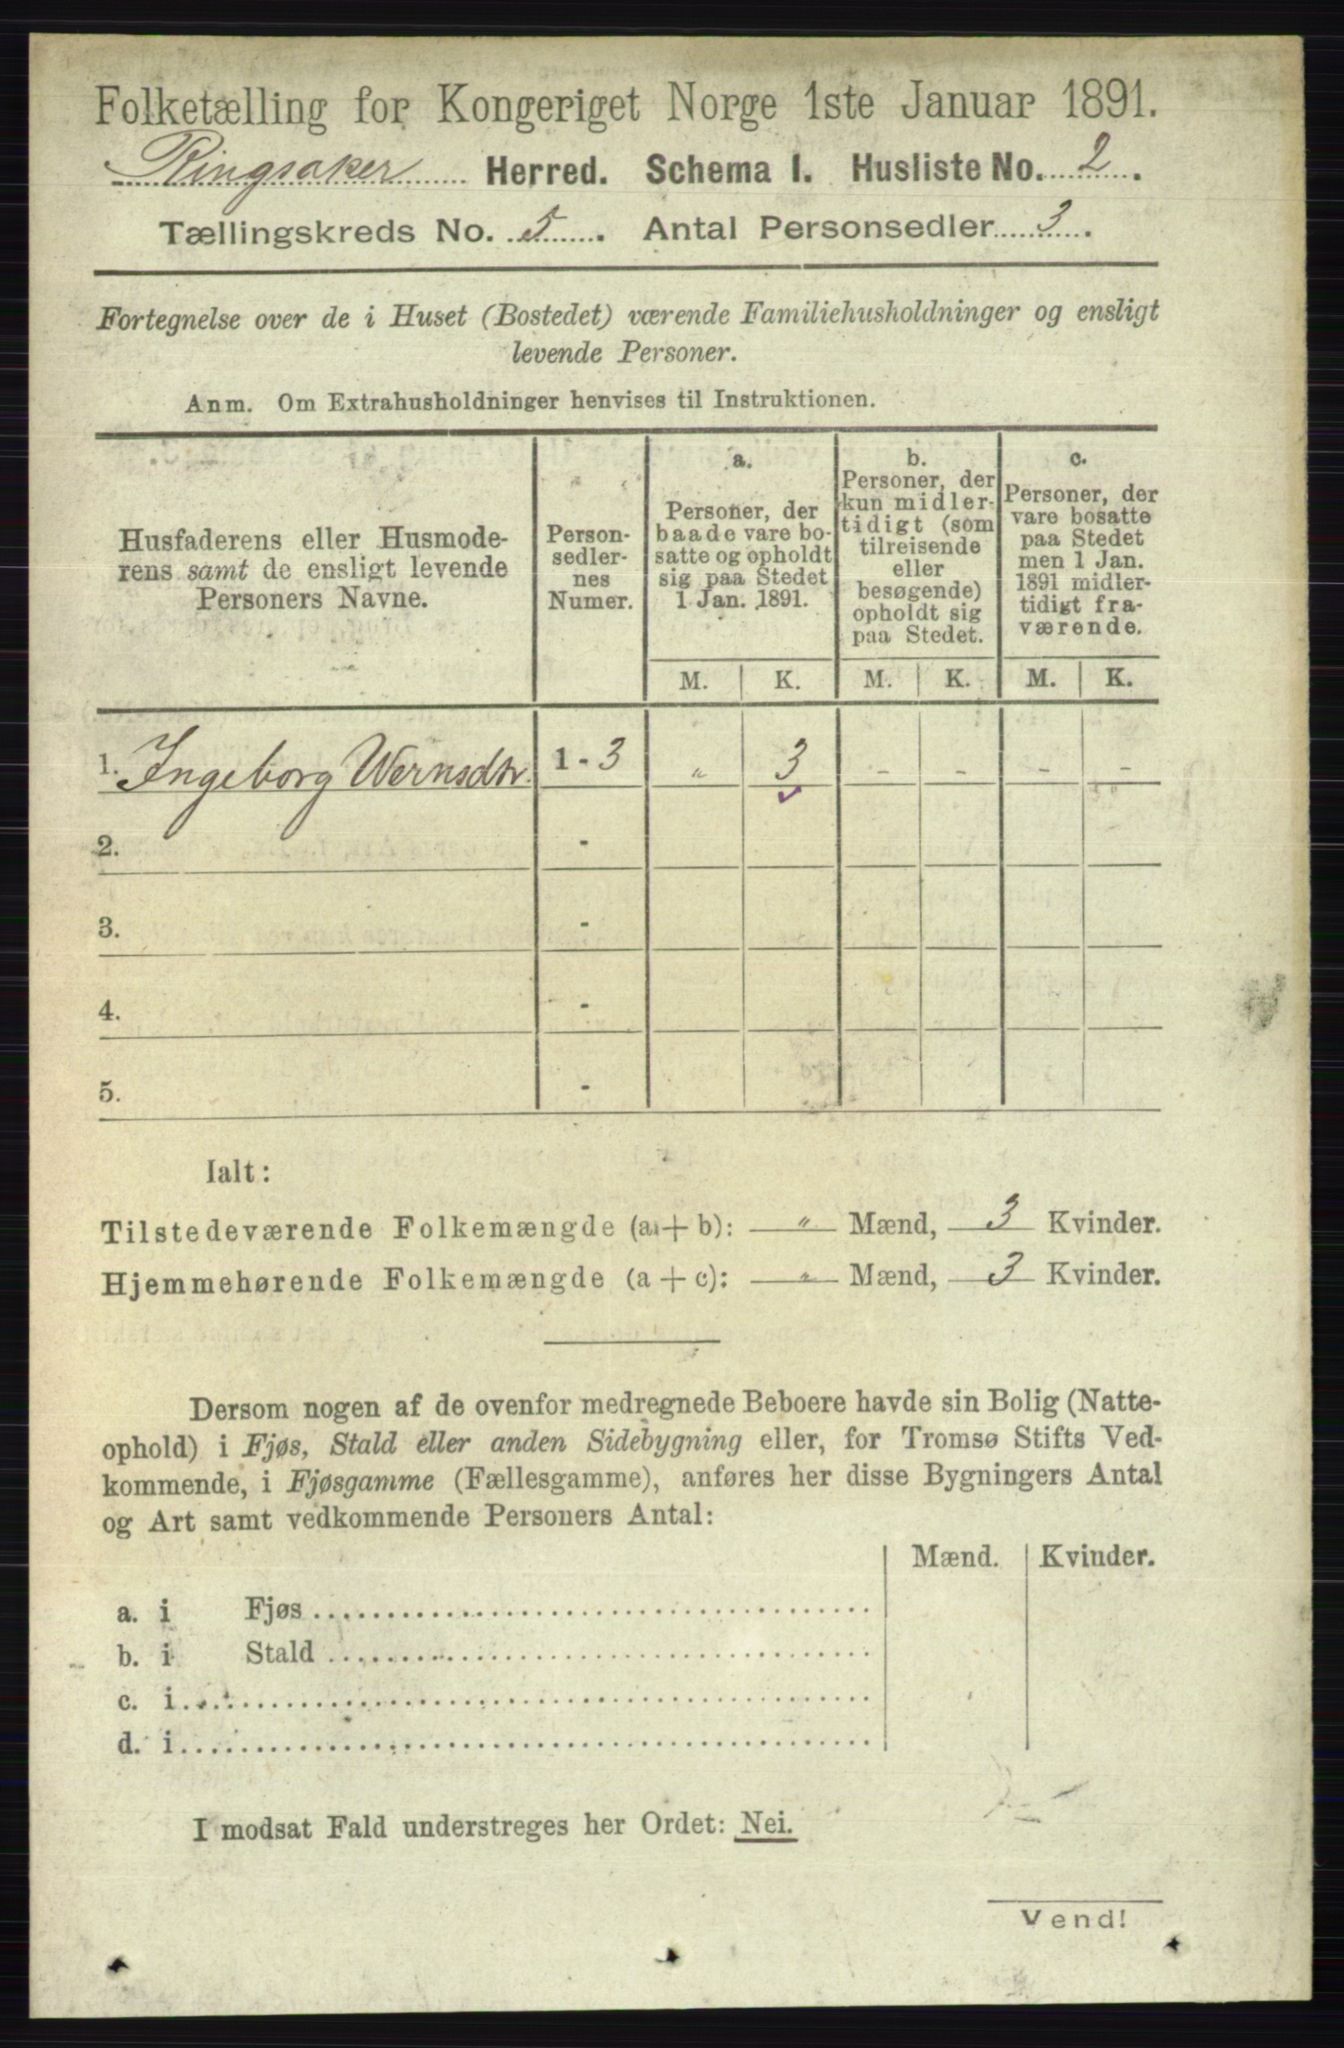 Folketælling for Kongeriget Norge 1ste Januar 1891.
Ringsaker Herred. Schema I. Husliste No. 2.
Tællingskreds No. 5. Antal Personsedler 3.
Fortegnelse over de i Huset (Bostedet) værende Familiehusholdninger og ensligt
levende Personer.
Anm. Om Extrahusholdninger henvises til Instruktionen.
Husfaderens eller Husmode-
rens samt de ensligt levende
Personers Navne.
Person-
sedler-
nes
Numer.
a.
Personer, der
baade vare bo-
satte og opholdt
sig paa Stedet
1 Jan. 1891.
b.
Personer, der
kun midler-
tidigt (som
tilreisende
eller
besøgende)
opholdt sig
paa Stedet.
c.
Personer, der
vare bosatte
paa Stedet
men 1 Jan.
1891 midler-
tidigt fra-
værende.
M. K. M. K. M. K.
1. Ingeborg Wernsdtr. 1 - 3 „ 3 - - - -
2. -
3. -
4. -
5. -
Ialt:
Tilstedeværende Folkemængde (a + b): „ Mænd, 3 Kvinder.
Hjemmehørende Folkemængde (a + c): „ Mænd, 3 Kvinder.
Dersom nogen af de ovenfor medregnede Beboere havde sin Bolig (Natte-
ophold) i Fjøs, Stald eller anden Sidebygning eller, for Tromsø Stifts Ved-
kommende, i Fjøsgamme (Fællesgamme), anføres her disse Bygningers Antal
og Art samt vedkommende Personers Antal:
Mænd. Kvinder.
a. i Fjøs
b. i Stald
c. i
d. i
I modsat Fald understreges her Ordet: Nei.
Vend!